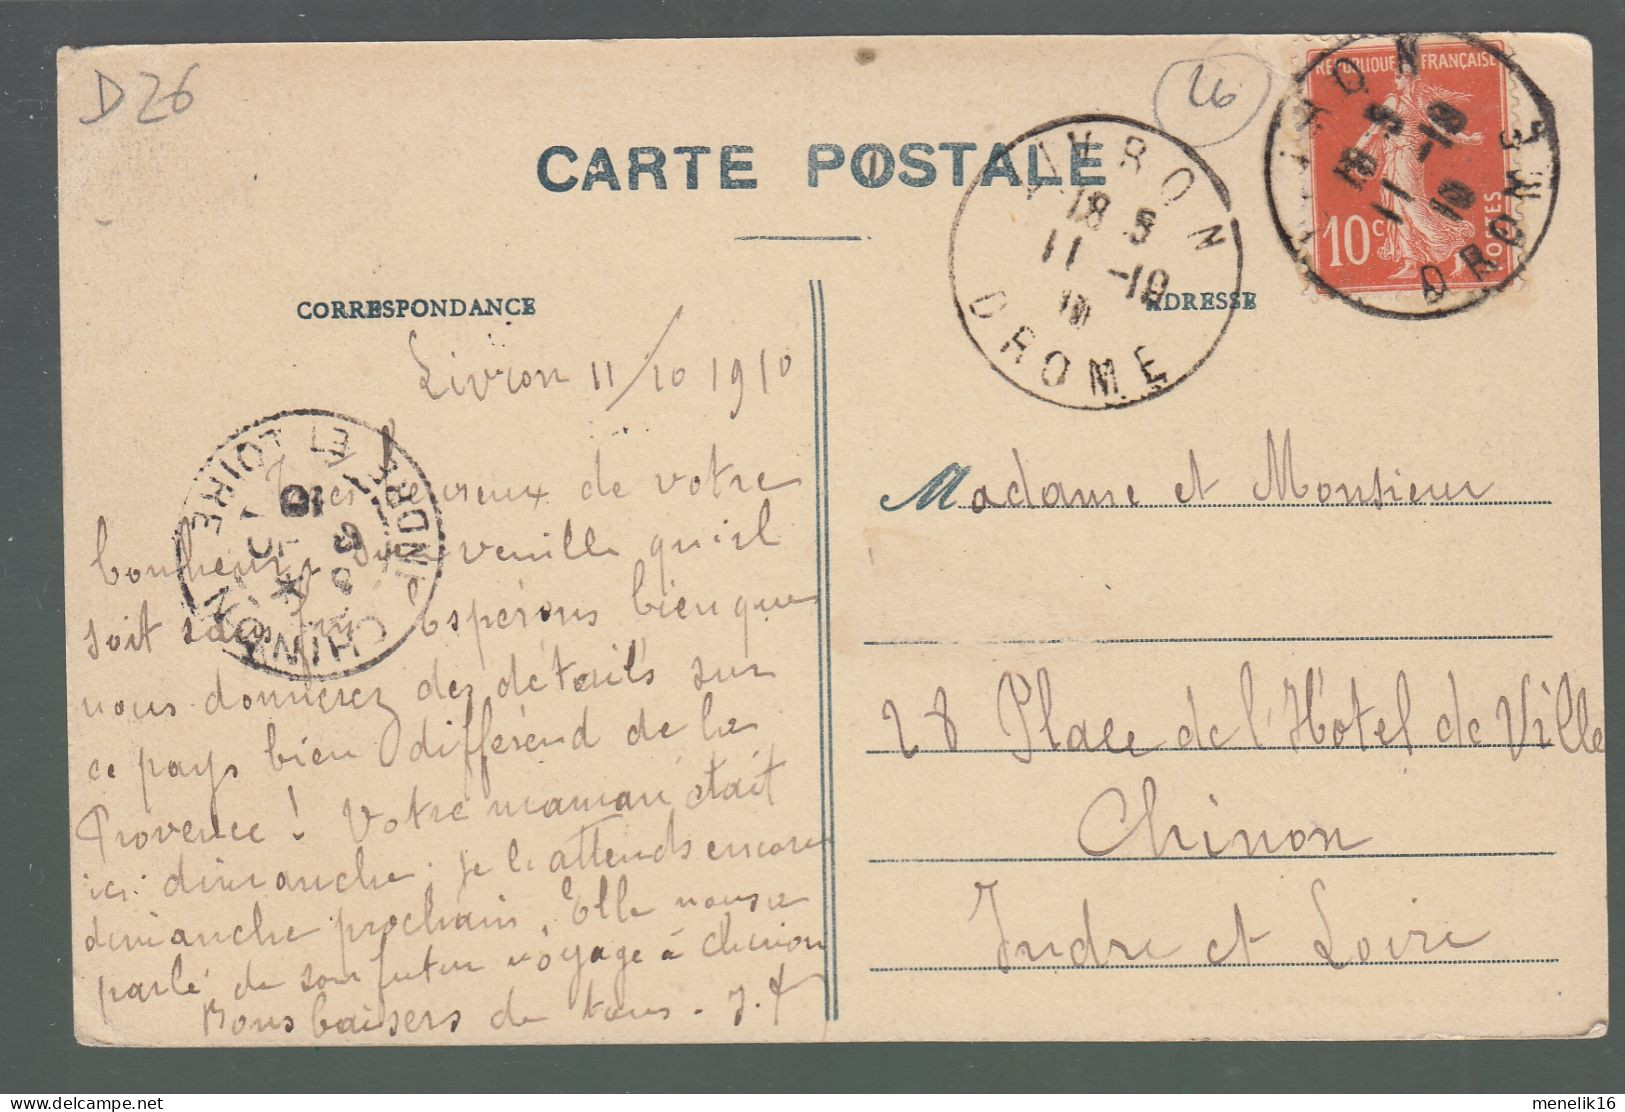 D26
26
CARTE POSTALE
REPUBLIQUE FRANÇAISE
10c
POSTES
LIVRON
18 5
11 -10
10
DROME
LIVRON
18 5
11 -10
10
DROME
CORRESPONDANCE
ADRESSE
Livron 11/10 1910
Très heureux de votre
bonheur veuille qu'il
soit sans fin ! Espérons bien que
nous donnerez des détails sur
ce pays bien différend de la
Provence ! Votre maman était
ici dimanche. Je l'attends encore
dimanche prochain. Elle nous a
parlé de son futur voyage à Chinon
Bons baisers de tous - J.
CHINON
INDRE ET LOIRE
Madame et Monsieur
28 Place de l'Hôtel de Ville
Chinon
Indre et Loire
menelik16